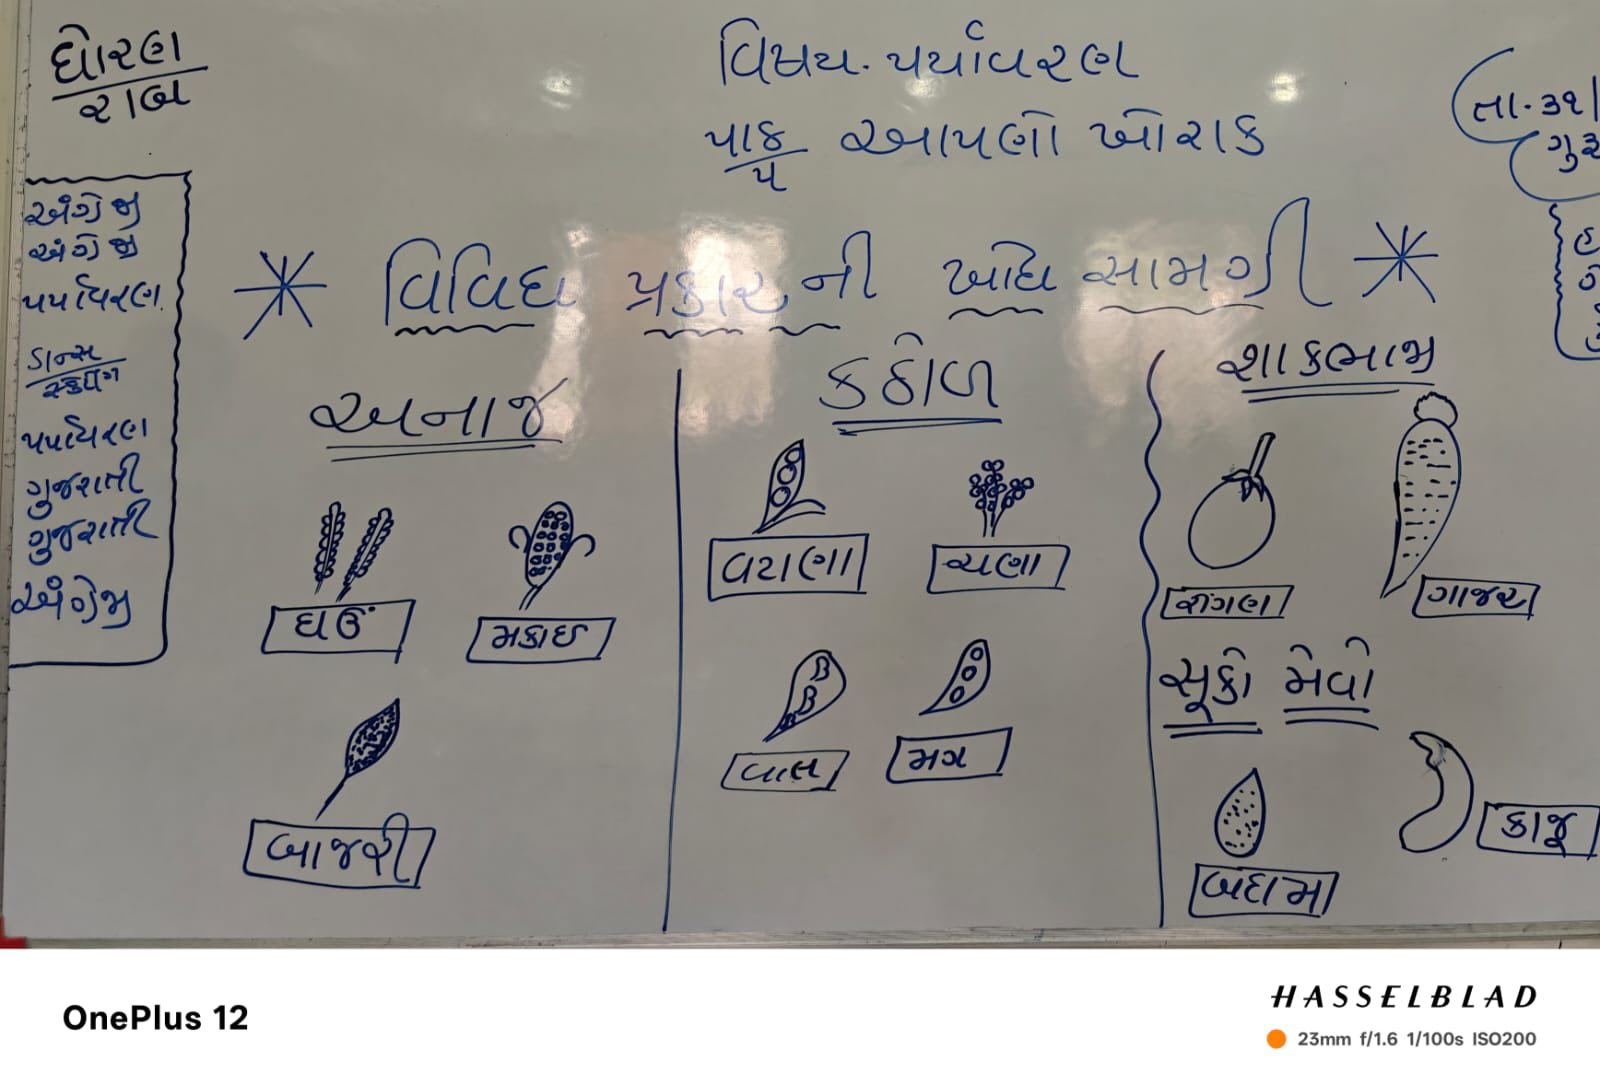 ધોરણ
૨ાબ
વિષય. પર્યાવરણ
પાઠ આપણો ખોરાક
૫
તા. ૩૧/
ગુરુ
અંગ્રેજી
અંગ્રેજી
પર્યાવરણ
ડાન્સ
સ્કેટીંગ
પર્યાવરણ
ગુજરાતી
ગુજરાતી
અંગ્રેજી
* વિવિધ પ્રકાર ની ખાદ્ય સામગ્રી *
અનાજ
ઘઉં
મકાઈ
બાજરી
કઠોળ
વટાણા
ચણા
વાલ
મગ
શાકભાજી
રીંગણ
ગાજર
સૂકો મેવો
બદામ
કાજૂ
OnePlus 12
HASSELBLAD
23mm f/1.6 1/100s ISO200